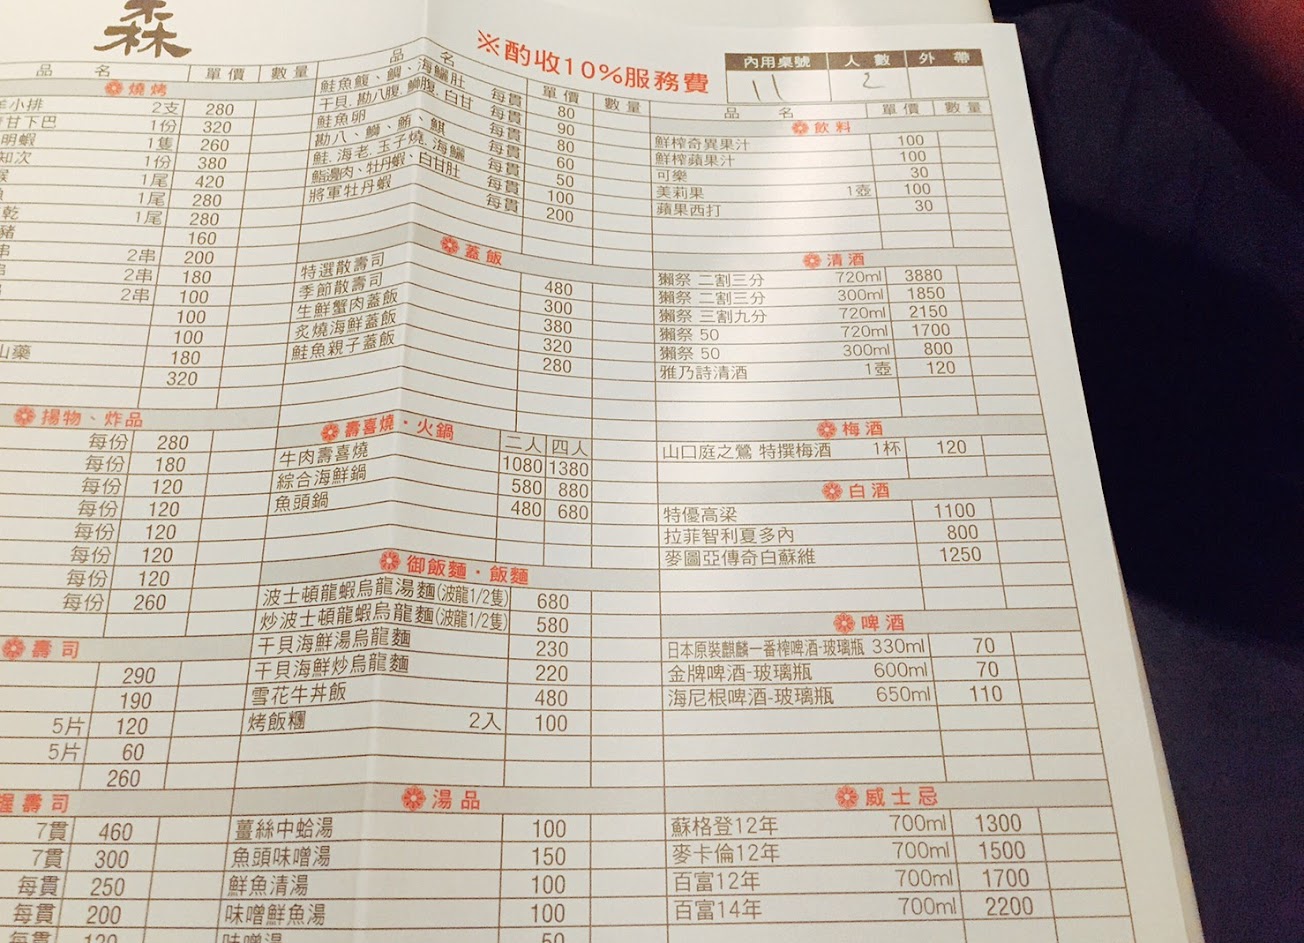 森
※酌收10%服務費
內用桌號 人數 外帶
11 2
品名 單價 數量
燒烤
小排 2支 280
甘下巴 1份 320
明蝦 1隻 260
知次 1份 380
1尾 420
1尾 280
乾 1尾 280
豬 160
串 2串 200
2串 180
2串 100
100
100
山藥 180
320
揚物、炸品
每份 280
每份 180
每份 120
每份 120
每份 120
每份 120
每份 120
每份 260
壽司
290
190
5片 120
5片 60
260
握壽司
7貫 460
7貫 300
每貫 250
每貫 200
每貫 120
品名 單價 數量
鮭魚鰻、鯛、海鱺肚 每貫 80
干貝、勘八腹、鰤腹、白甘 每貫 90
鮭魚卵 每貫 80
勘八、鰤、鮪、鯕 每貫 60
鮭、海老、玉子燒、海鱺 每貫 50
鮨邊肉、牡丹蝦、白甘肚 每貫 100
將軍牡丹蝦 每貫 200
蓋飯
特選散壽司 480
季節散壽司 300
生鮮蟹肉蓋飯 380
炙燒海鮮蓋飯 320
鮭魚親子蓋飯 280
壽喜燒・火鍋
二人 四人
牛肉壽喜燒 1080 1380
綜合海鮮鍋 580 880
魚頭鍋 480 680
御飯麵・飯麵
波士頓龍蝦烏龍湯麵(波龍1/2隻) 680
炒波士頓龍蝦烏龍麵(波龍1/2隻) 580
干貝海鮮湯烏龍麵 230
干貝海鮮炒烏龍麵 220
雪花牛丼飯 480
烤飯糰 2入 100
湯品
薑絲中蛤湯 100
魚頭味噌湯 150
鮮魚清湯 100
味噌鮮魚湯 100
味噌湯 50
品名 單價 數量
飲料
鮮榨奇異果汁 100
鮮榨蘋果汁 100
可樂 30
美莉果 1壺 100
蘋果西打 30
清酒
獺祭 二割三分 720ml 3880
獺祭 二割三分 300ml 1850
獺祭 三割九分 720ml 2150
獺祭 50 720ml 1700
獺祭 50 300ml 800
雅乃詩清酒 1壺 120
梅酒
山口庭之鶯 特撰梅酒 1杯 120
白酒
特優高梁 1100
拉菲智利夏多內 800
麥圖亞傳奇白蘇維 1250
啤酒
日本原裝麒麟一番榨啤酒-玻璃瓶 330ml 70
金牌啤酒-玻璃瓶 600ml 70
海尼根啤酒-玻璃瓶 650ml 110
威士忌
蘇格登12年 700ml 1300
麥卡倫12年 700ml 1500
百富12年 700ml 1700
百富14年 700ml 2200